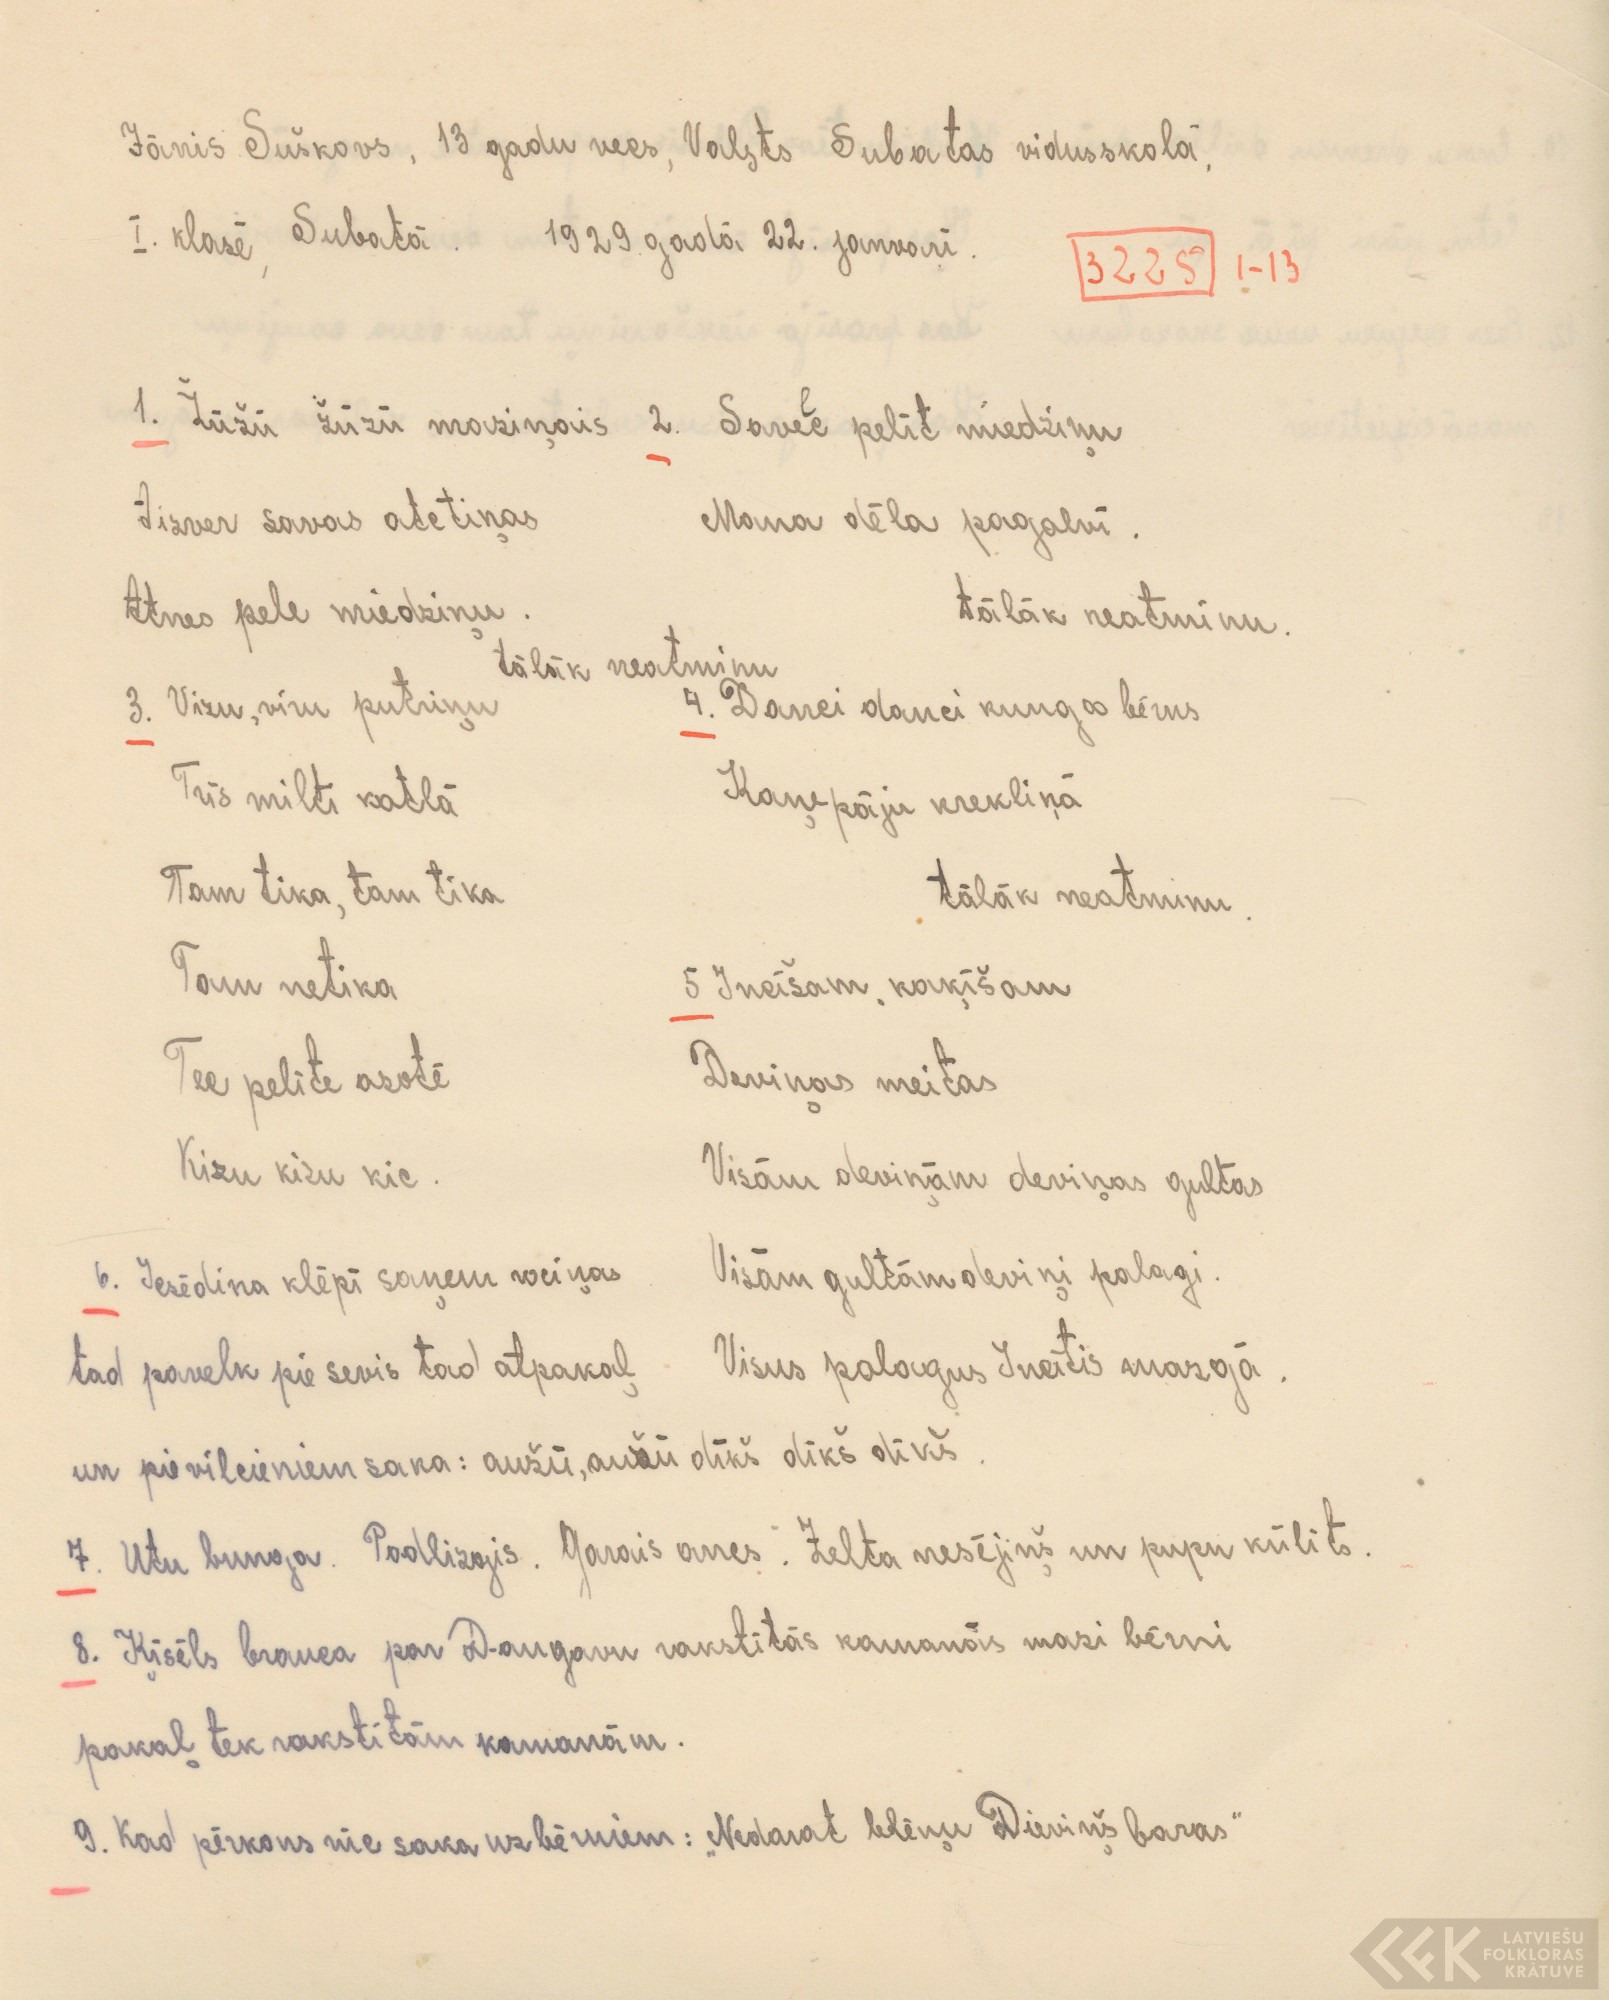 Jānis Suškovs, 13 gadu vecs, Valsts Subatas vidusskolā,
I. klasē, Subatā. 1929. gadā 22. janvarī.
3225 1-13
1. Žūžū žūžū maziņais
Aizver savas atctiņas
Atnes pele miedziņu.
tālāk neatminu
2. Saveļč pelīt miedziņu
Mana dēla pagalvī.
tālāk neatminu.
3. Vizu, viru putriņu
Trīs milti katlā
Tam tika, tam tika
Tam netika
Tec pelīte azotē
Kizu kizu kic.
4. Danci danci kunga bērns
Kaņepāju krekliņā
tālāk neatminu.
5 Incīšam, kaķīšam
Deviņas meitas
Visām deviņām deviņas gultas
Visām gultām deviņi palagi.
Visus palagus Incītis mazgā.
6. Iesēdina klēpī saņem rociņas
tad pavelk pie sevis tad atpakaļ
un pievilcieniem saka: aužū, aužū dīkš dīkš dīkš.
7. Utu bunga. Padlizajis. Garais ances. Zelta nesējiņš un pupu kūlīts.
8. Ķīsēls brauca par Daugavu rakstītās kamanās mazi bērni
pakaļ tek rakstītām kamanām.
9. Kad pērkons rūc saka uz bērniem: „Nedarat blēņu Dieviņš baras"
LATVIEŠU
FOLKLORAS
KRĀTUVE